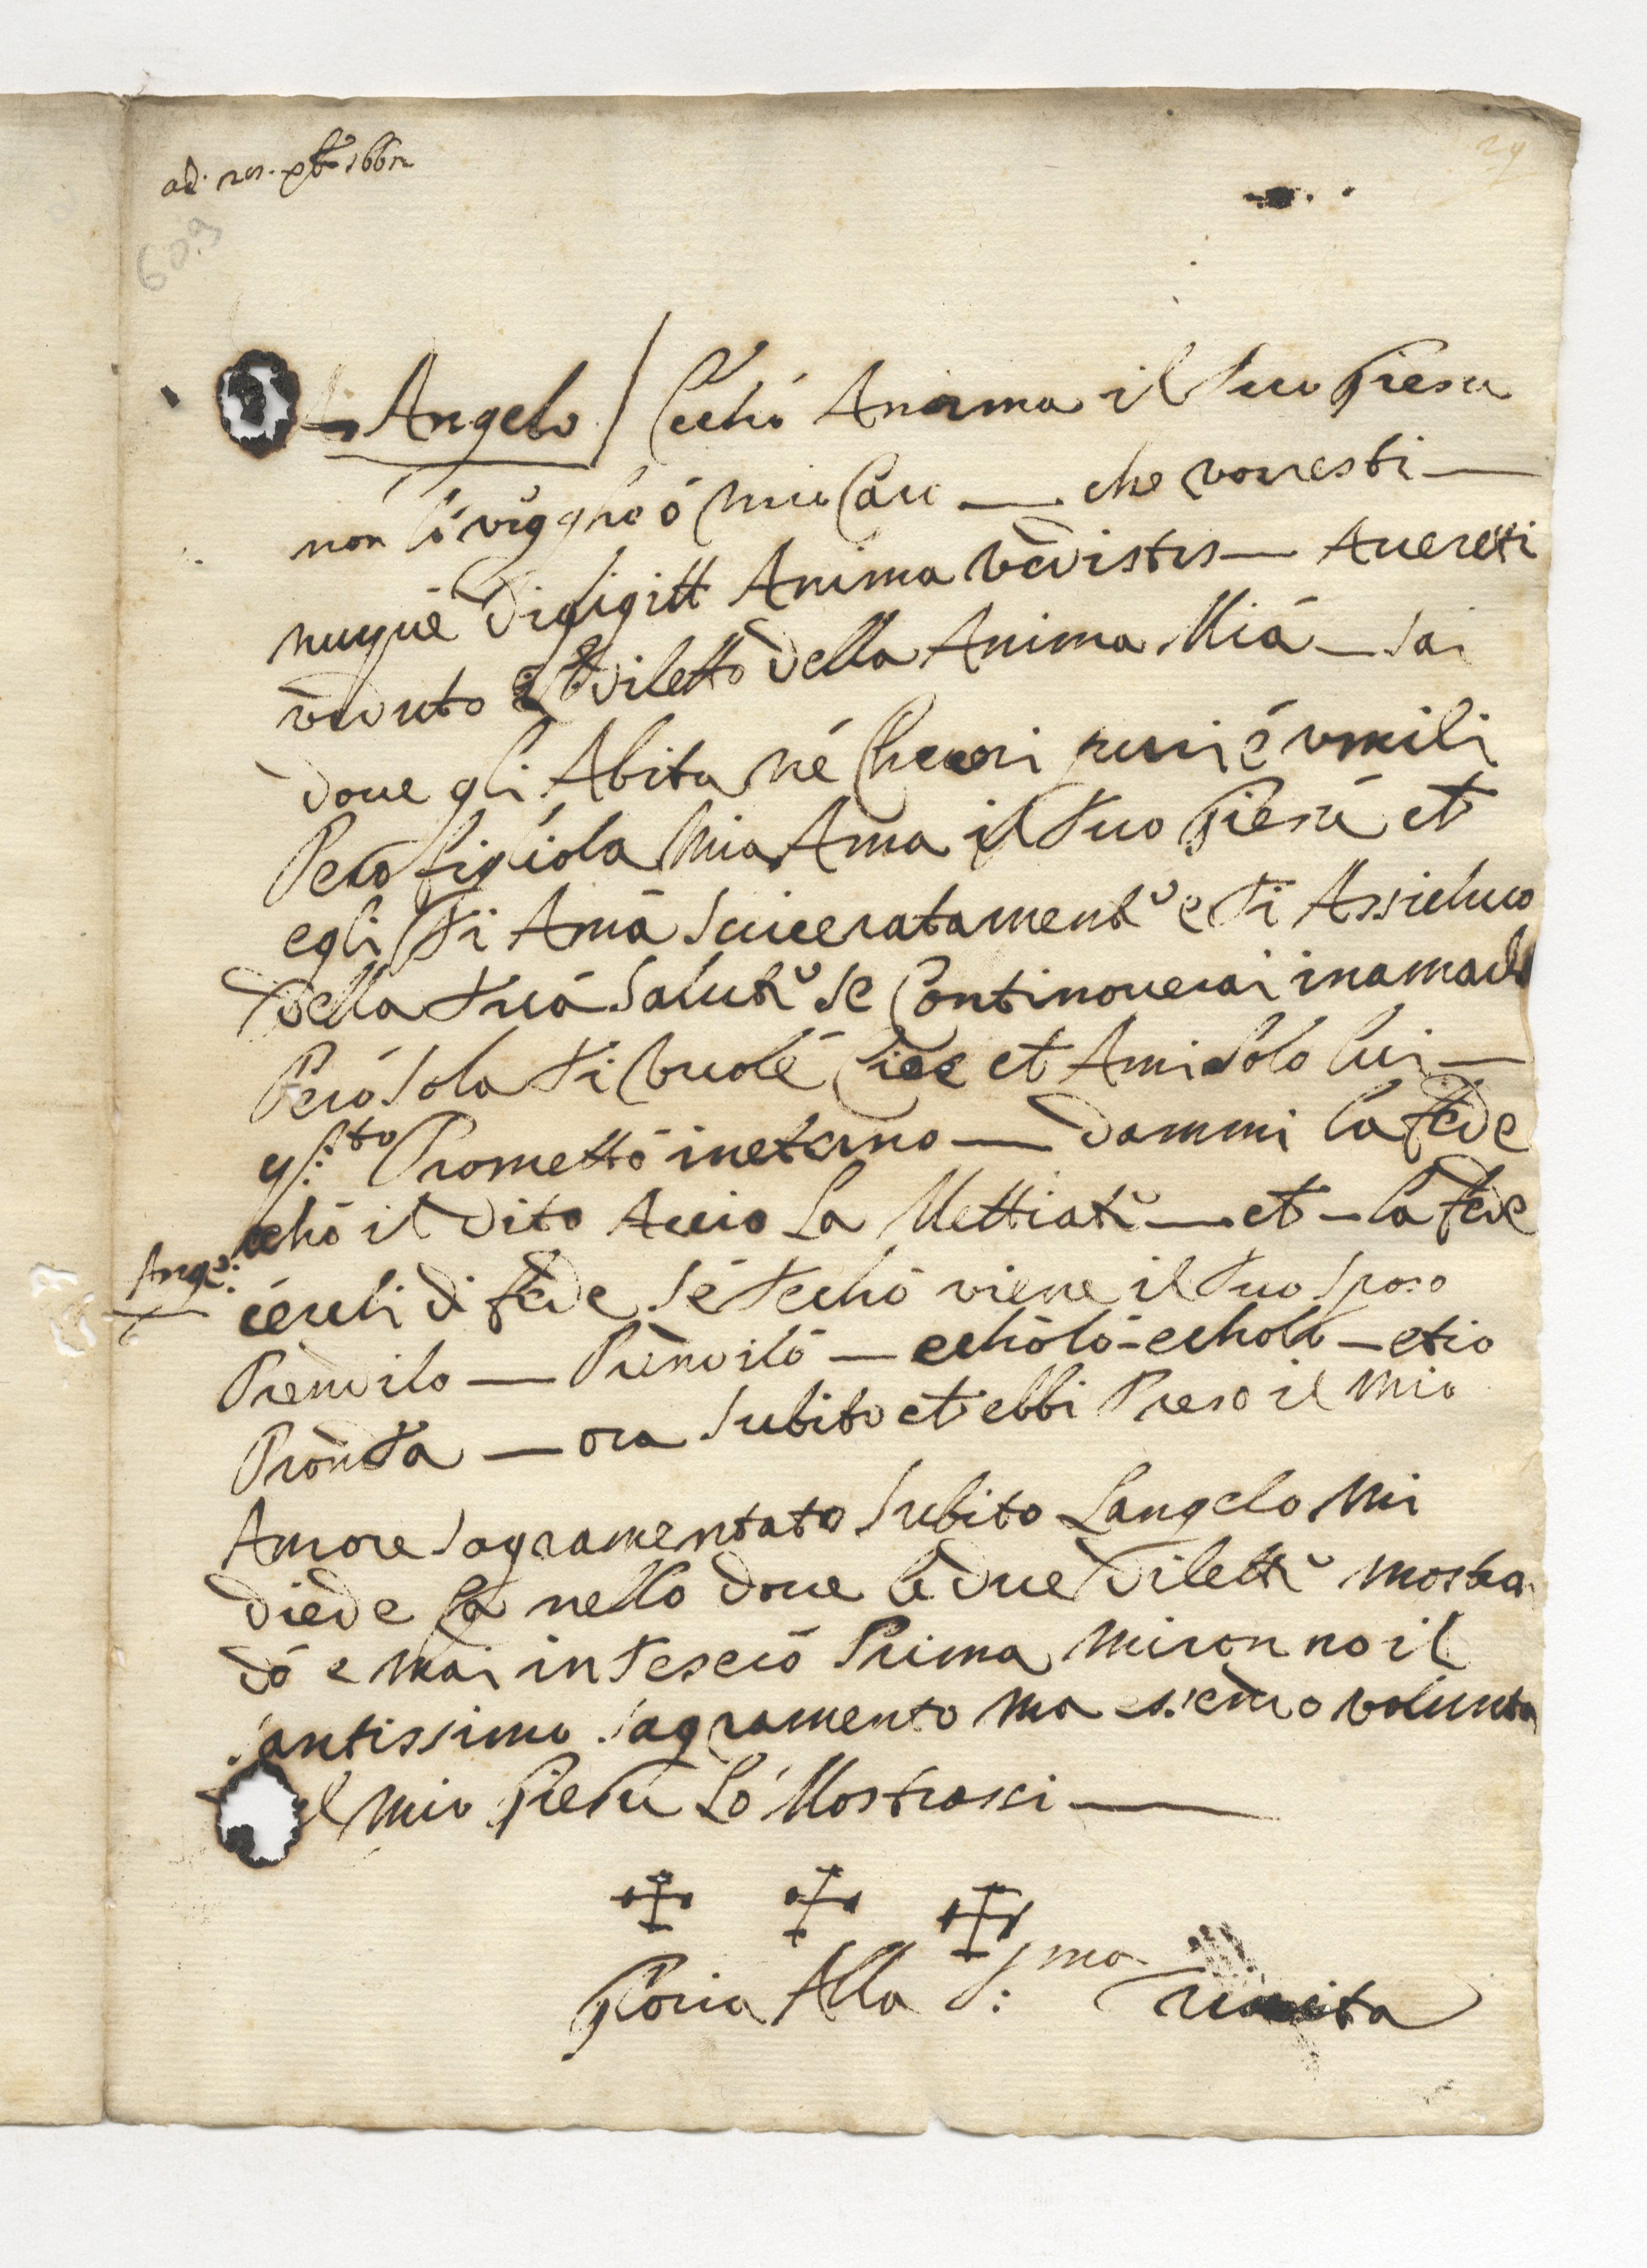 29
609
Angelo / Ecchó Anima il tuo Giesu
non ló veggho ó mio Caro — che vorresti —
Anima — Averetti
veduto il diletto della Anima Miá — sai
doue gli Abita né Cheuori puri é vmili
Peró figliola Mia Ama il tuo Giesú et
egli ti Amá suiceratamente e ti Assichuro
della tuá salute se Continouerai in amarlo
Peró sola ti vuole et Ami solo lui —
Promettó ineterno — dammi la fede
ecchó il dito Acció La Mettiate — et — la fede
Ange:
di fede sé techó viene il tuo sposo
Prendilo — Prendiló — ecchóló - eccholo — etio
Prónta — ora subito et ebbi Preso il Mio
Amore sagramentato subito Langelo Mi
diede La nello doue le due dilette mostran
dó e Mai intesció Prima Mironno il
santissimo sagramento Ma essendo voluntá
el Mio Giesu Ló Mostrasci —
Gloria Alla S:ma Trinita